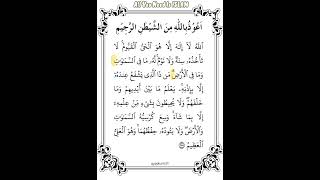 All You Need Is ISLAM
أَعُوذُ بِاللَّهِ مِنَ الشَّيْطَنِ الرَّجِيْمِ
اللَّهُ لَا إِلَٰهَ إِلَّا هُوَ الْحَيُّ الْقَيُّومُ لَا
تَأْخُذُهُ سِنَةٌ وَلَا نَوْمٌ لَهُ مَا فِي السَّمَٰوَٰتِ
وَمَا فِي الْأَرْضِ مَن ذَا الَّذِي يَشْفَعُ عِندَهُ
إِلَّا بِإِذْنِهِ يَعْلَمُ مَا بَيْنَ أَيْدِيهِمْ وَمَا
خَلْفَهُمْ وَلَا يُحِيطُونَ بِشَيْءٍ مِّنْ عِلْمِهِ
إِلَّا بِمَا شَاءَ وَسِعَ كُرْسِيُّهُ السَّمَٰوَٰتِ
وَالْأَرْضَ وَلَا يَئُودُهُ حِفْظُهُمَا وَهُوَ الْعَلِيُّ
الْعَظِيمُ